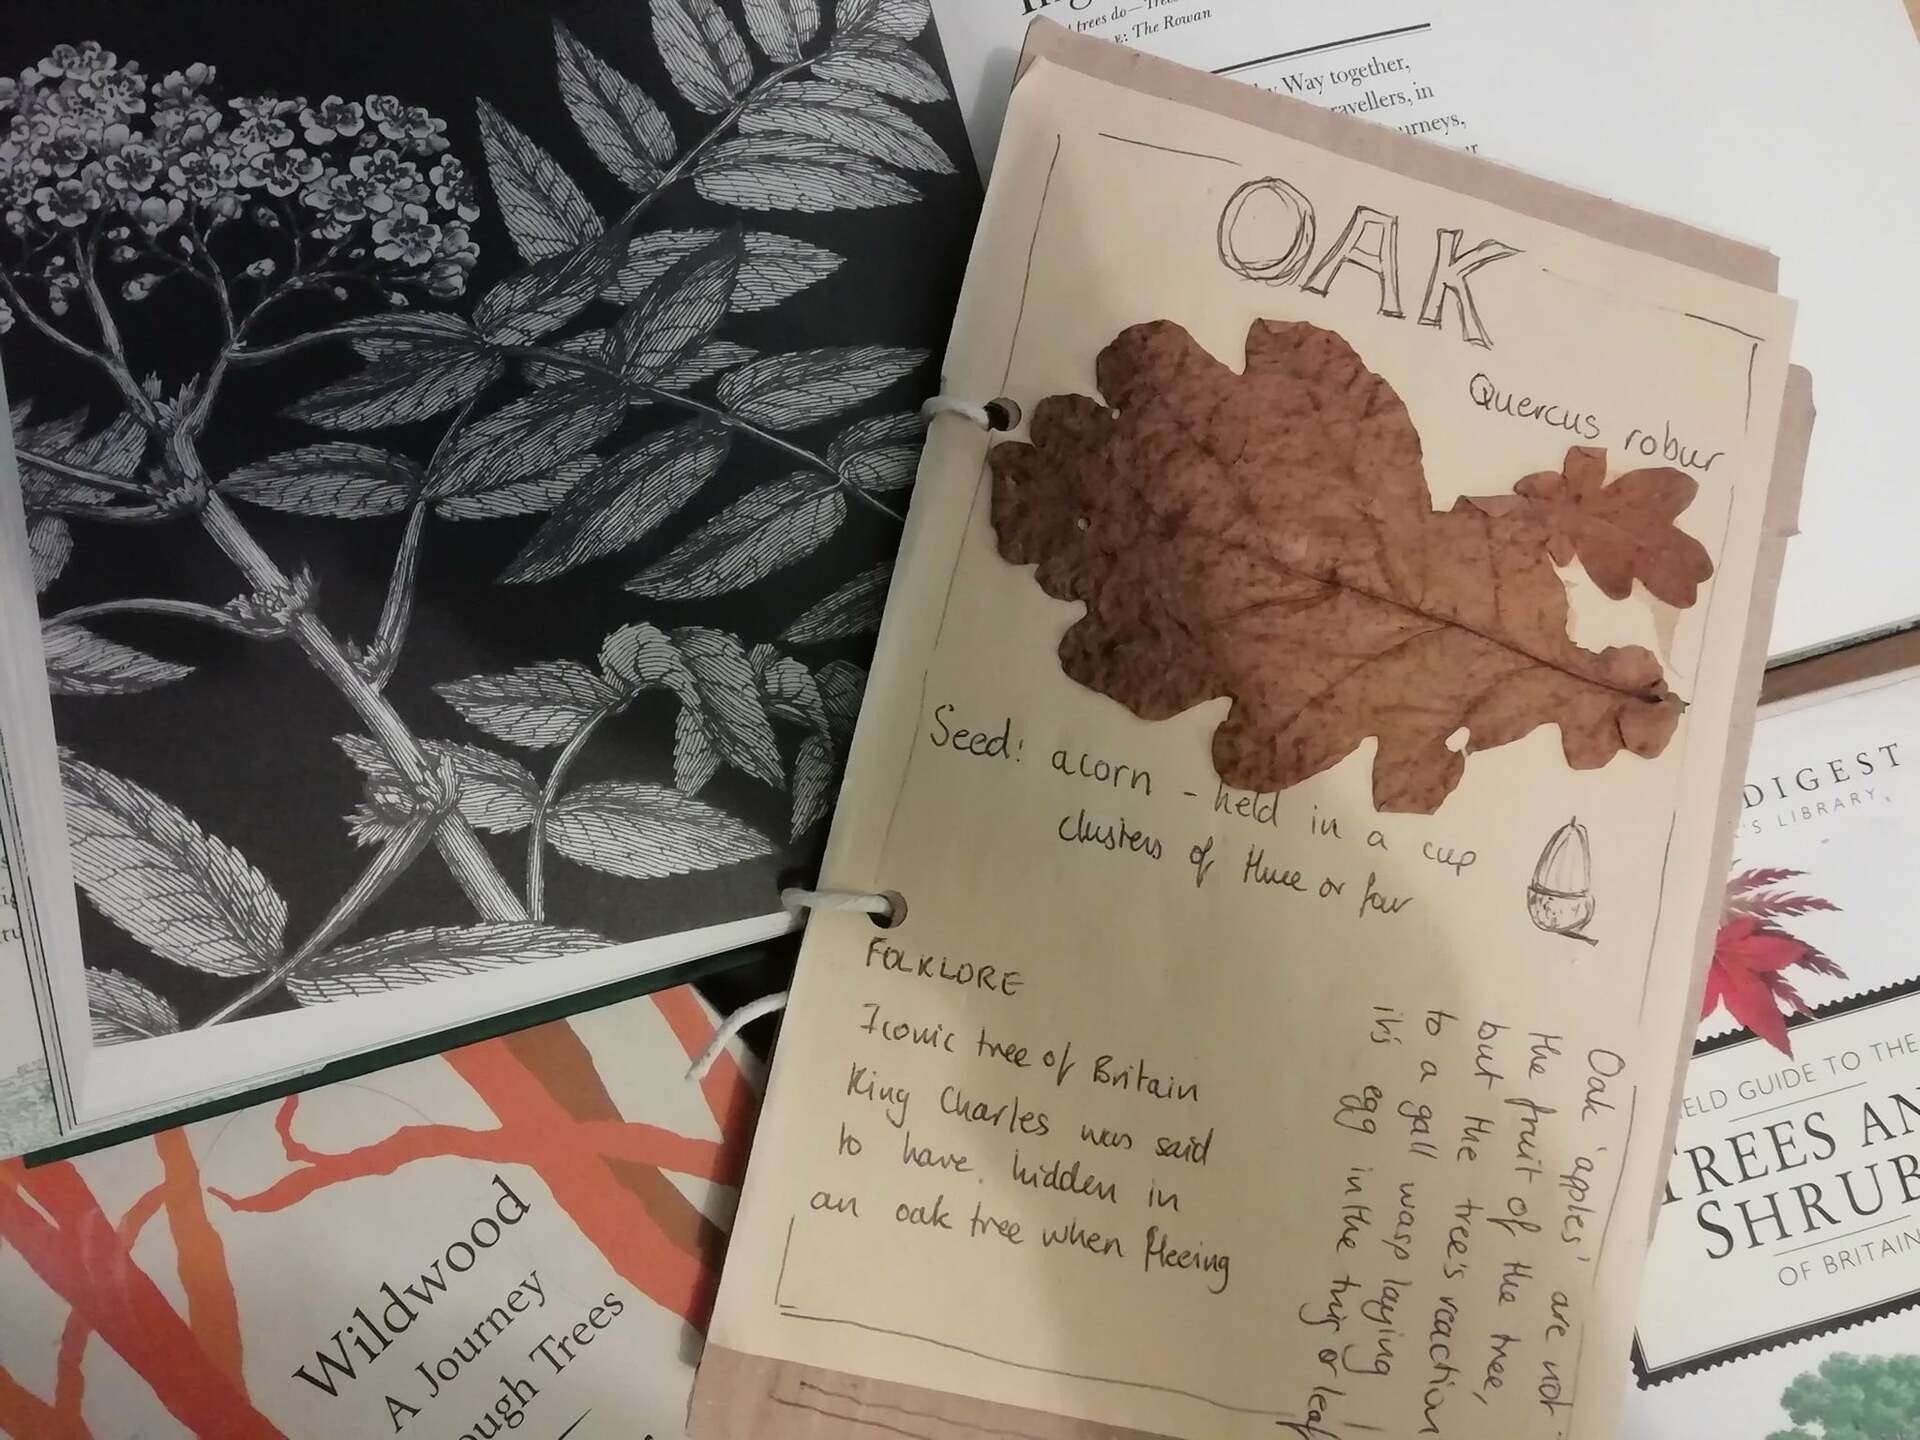 trees do—
: The Rowan
Way together,
ravellers, in
urneys,
OAK
Quercus robur
Seed: acorn - held in a cup
clusters of three or four
FOLKLORE
Iconic tree of Britain
King Charles was said
to have hidden in
an oak tree when fleeing
Oak 'apples' are not
the fruit of the tree,
but the tree's reaction
to a gall wasp laying
it's egg in the twig or leaf
DIGEST
'S LIBRARY
ELD GUIDE TO THE
TREES AN
SHRUB
OF BRITAIN
Wildwood
A Journey
ough Trees